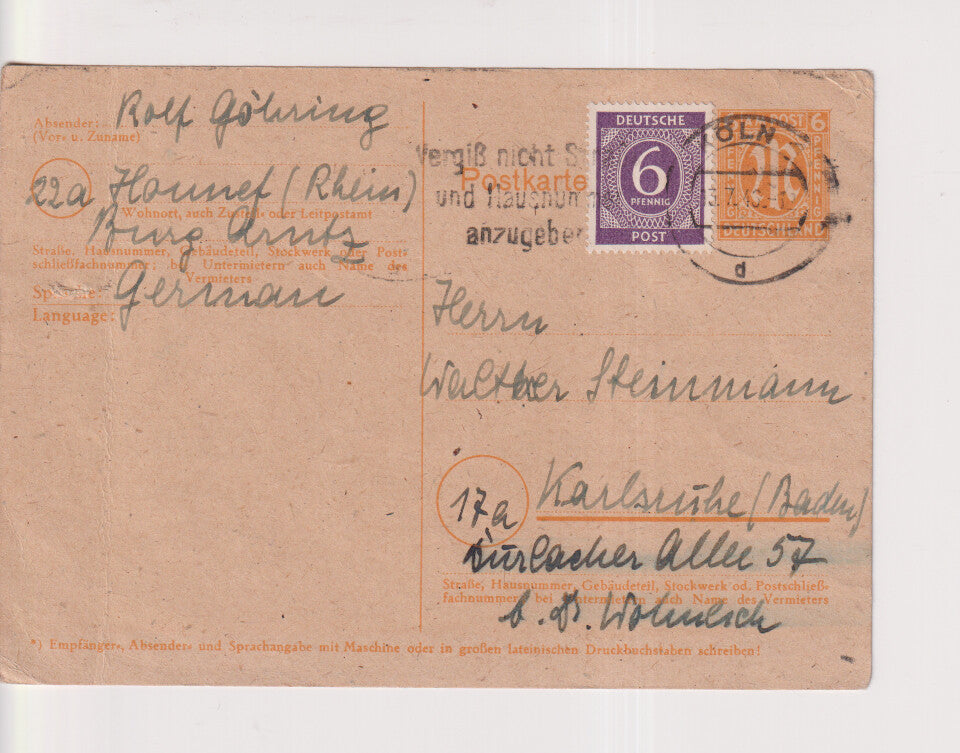 Absender: Rolf Göhring
(Vor- u. Zuname)
22a Honnef (Rhein)
Wohnort, auch Zustell- oder Leitpostamt
Burg Arntz
Straße, Hausnummer, Gebäudeteil, Stockwerk oder Post-
schließfachnummer; bei Untermietern auch Name des
Vermieters
Sprache: German
Language:
Vergiß nicht
Postkarte
und Hausnum
anzugeben
DEUTSCHE
6
PFENNIG
POST
KÖLN
d
POST 6
PFENNIG
DEUTSCHLAND
Herrn
Walther Steinmann
17a Karlsruhe (Baden)
Durlacher Allee 57
Straße, Hausnummer, Gebäudeteil, Stockwerk od. Postschließ-
fachnummer; bei Untermietern auch Name des Vermieters
b. Dr.
*) Empfänger-, Absender- und Sprachangabe mit Maschine oder in großen lateinischen Druckbuchstaben schreiben!